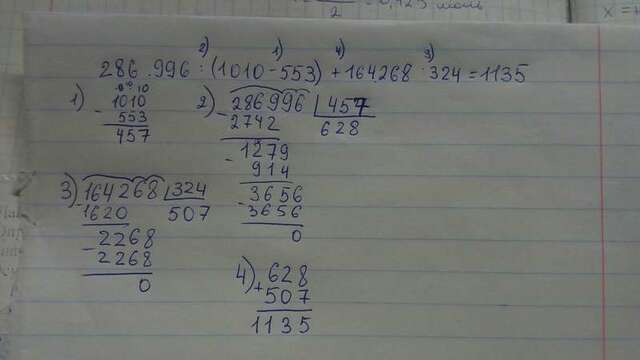 2) 1) 4) 3)
286.996 : (1010-553) + 164268 : 324 = 1135
1) 1010
- 553
457
2) 286996 | 457
- 2742 628
- 1279
914
- 3656
3656
0
3) 164268 | 324
- 1620 507
- 2268
2268
0
4) + 628
507
1135